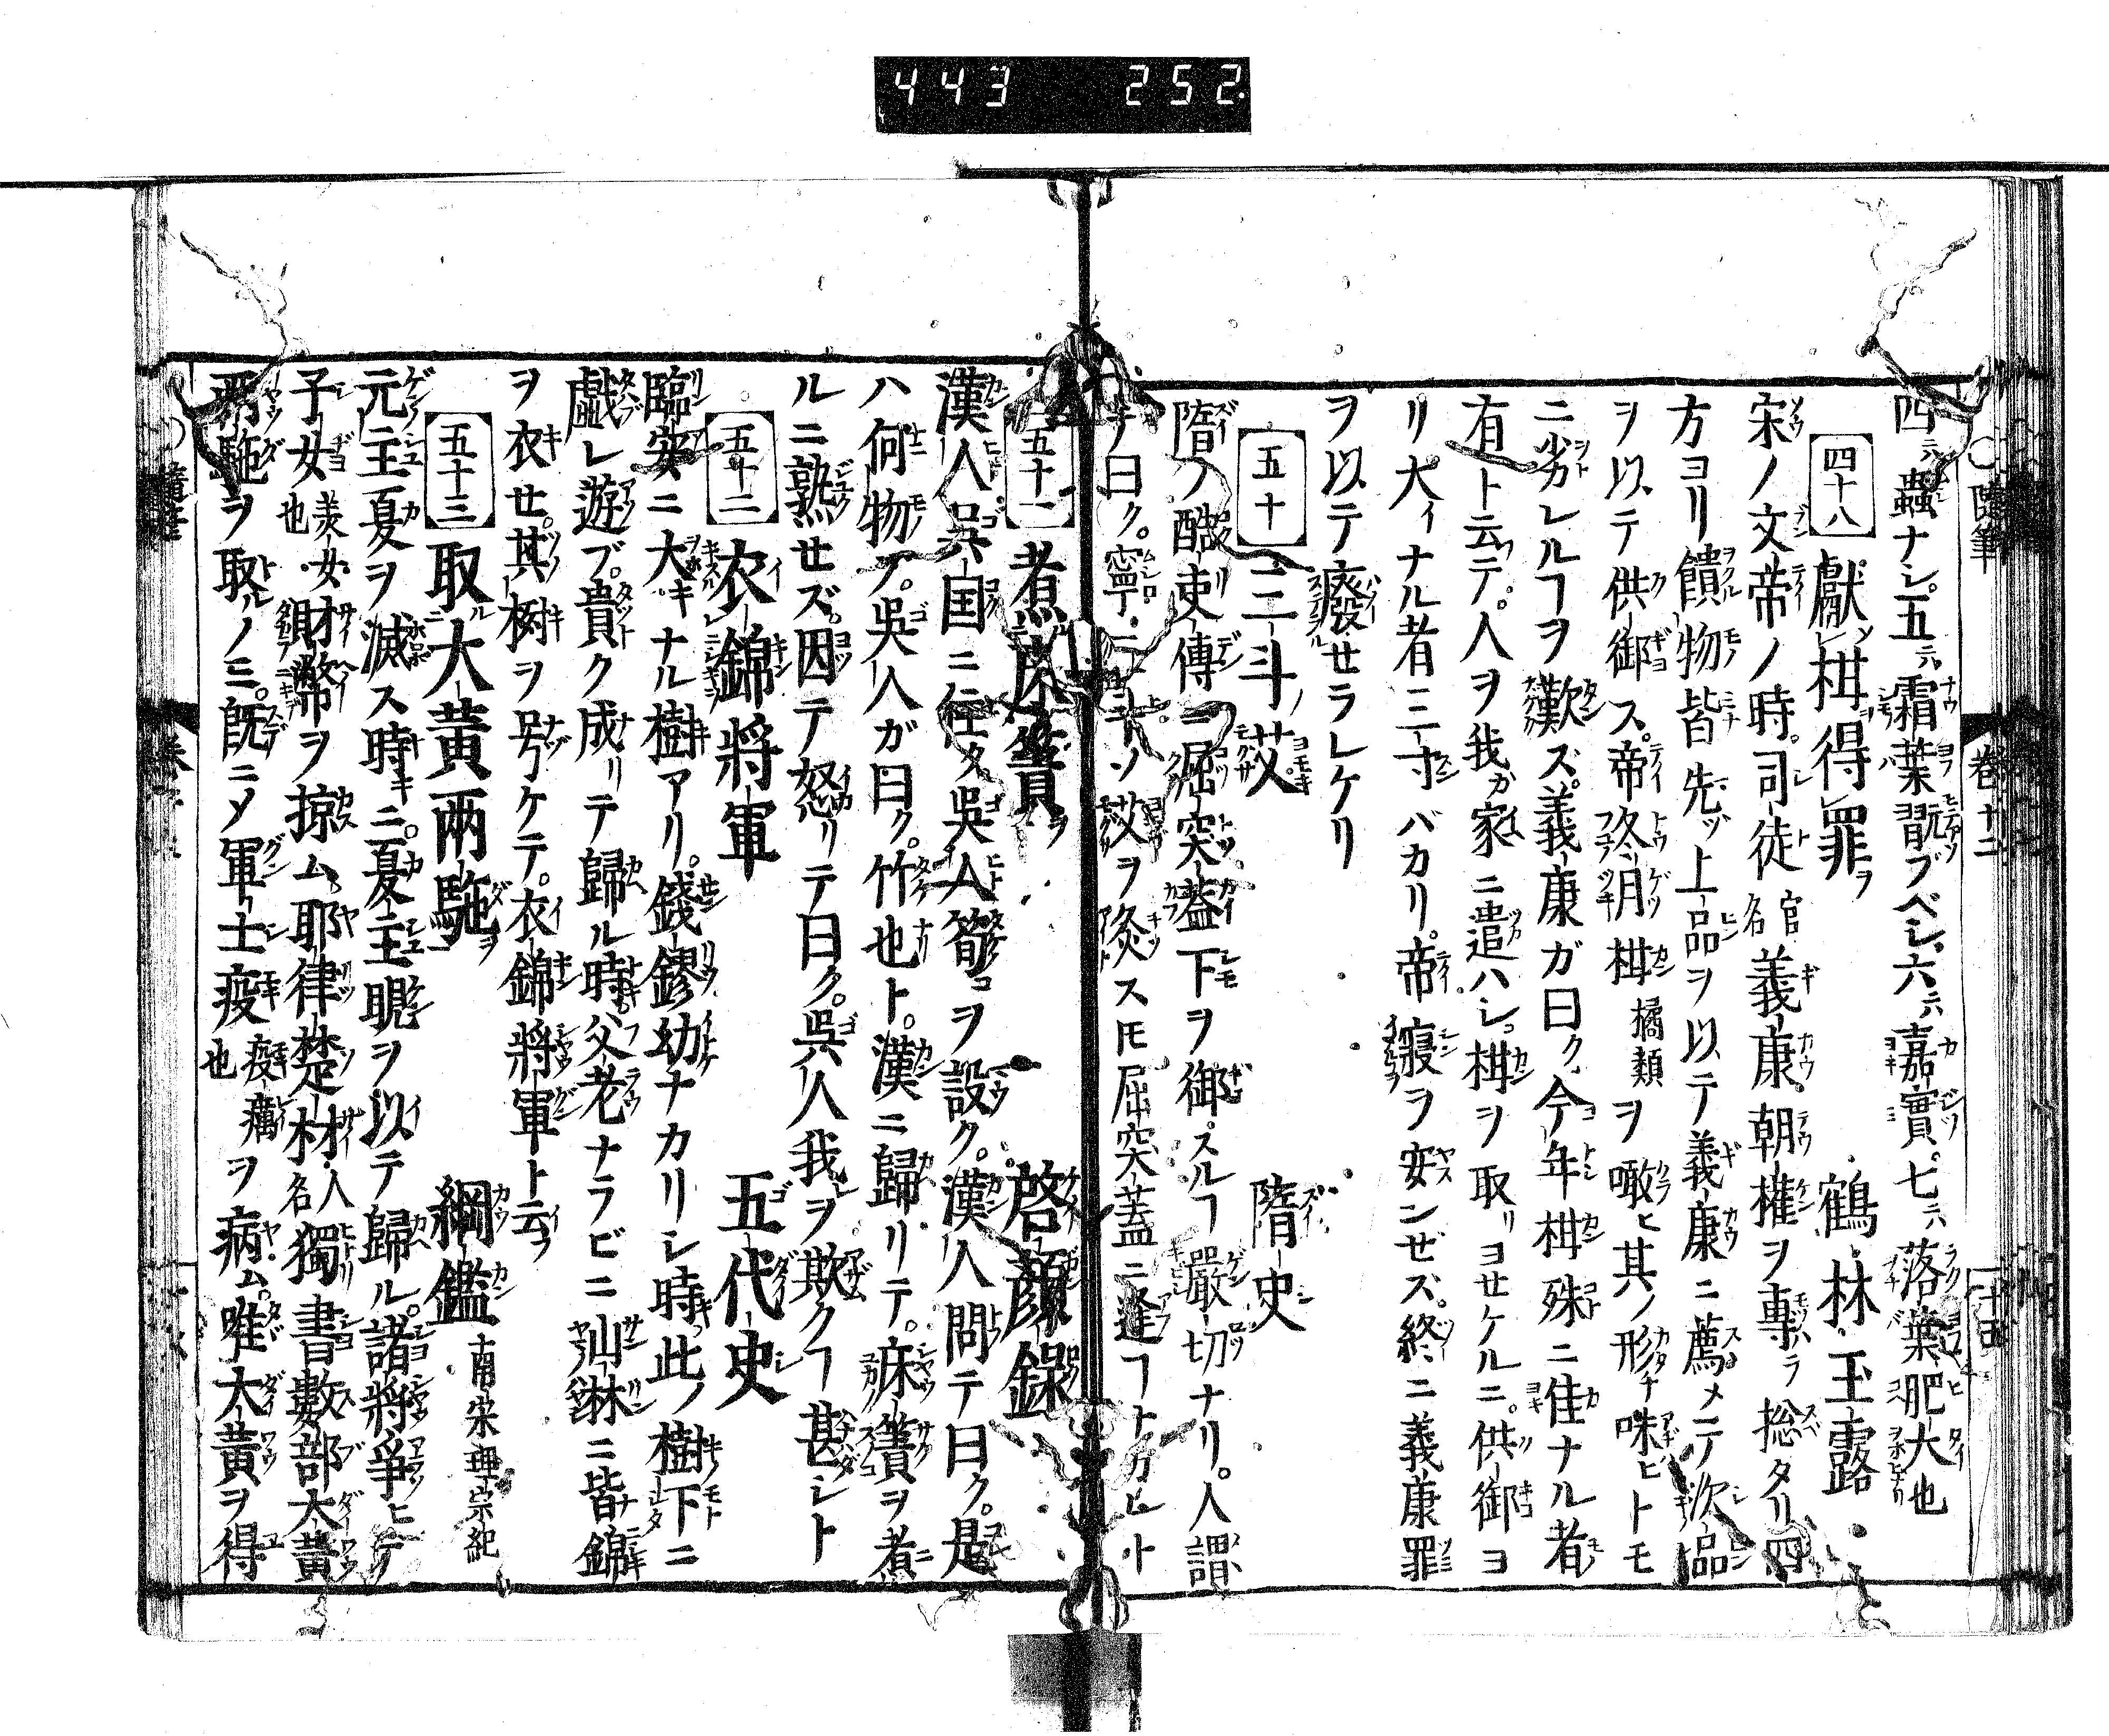 443 252
隨筆 卷十二 十四
四ニハ蟲ナシ。五ニハ霜葉翫ブベシ、六ニハ嘉實。七ニハ落葉肥大也
四十八 獻柑得罪ヲ 鶴林玉露
宋ノ文帝ノ時。司徒官名義康。朝權ヲ專ラ捴タリ四
方ヨリ饋物皆先ッ上品ヲ以テ義康ニ薦メテ次品
ヲ以テ供御ス。帝冬月柑橘類ヲ噉ヒ其ノ形チ味ビトモ
ニ劣レルヿヲ歎ズ。義康ガ曰ク今年柑殊ニ佳ナル者
有ト云テ。人ヲ我カ家ニ遣ハシ柑ヲ取リヨセケルニ。供御ヨ
リ大ィナル者三寸バカリ。帝寢ヲ安ンゼズ。終ニ義康罪
ヲ以テ癈せラレケリ
五十 三斗ノ艾 隋史
隋ノ酷吏傳ニ屈突蓋下ヲ御スルヿ嚴切ナリ。人謂
テ曰ク。寧ニ三斗ノ艾ヲ灸スモ屈突蓋ニ逢フヿナカレト
五十一 煮床簀ヲ 啓顔錄
漢人呉国ニ在タ呉人筍ヲ設ク。漢人問テ曰ク。是
ハ何物ア。呉人ガ曰ク。竹也ト。漢ニ歸リテ。床簀ヲ煮
ルニ熟せズ。因テ怒リテ曰ク。呉人我ヲ欺クヿ甚シト
五十二 衣錦將軍 五代史
臨安ニ大キナル樹アリ。錢鏐幼ナカリシ時此ノ樹下ニ
戲レ遊ブ。貴ク成リテ歸ル時。父老ナラビニ山林ニ皆錦
ヲ衣せ。其樹ヲ号ケテ。衣錦將軍ト云フ
五十三 取ル大黄両駞ヲ 綱鑑南宋理宗紀
元主夏ヲ滅ス時ニ。夏主睍ヲ以テ歸ル。諸將爭ヒテ
子女美女也財幣ヲ掠ム。耶律楚材人名獨書數部大黄
両駞ヲ取ルノミ。既ニメ軍士疫疫癘也ヲ病ム。唯大黄ヲ得